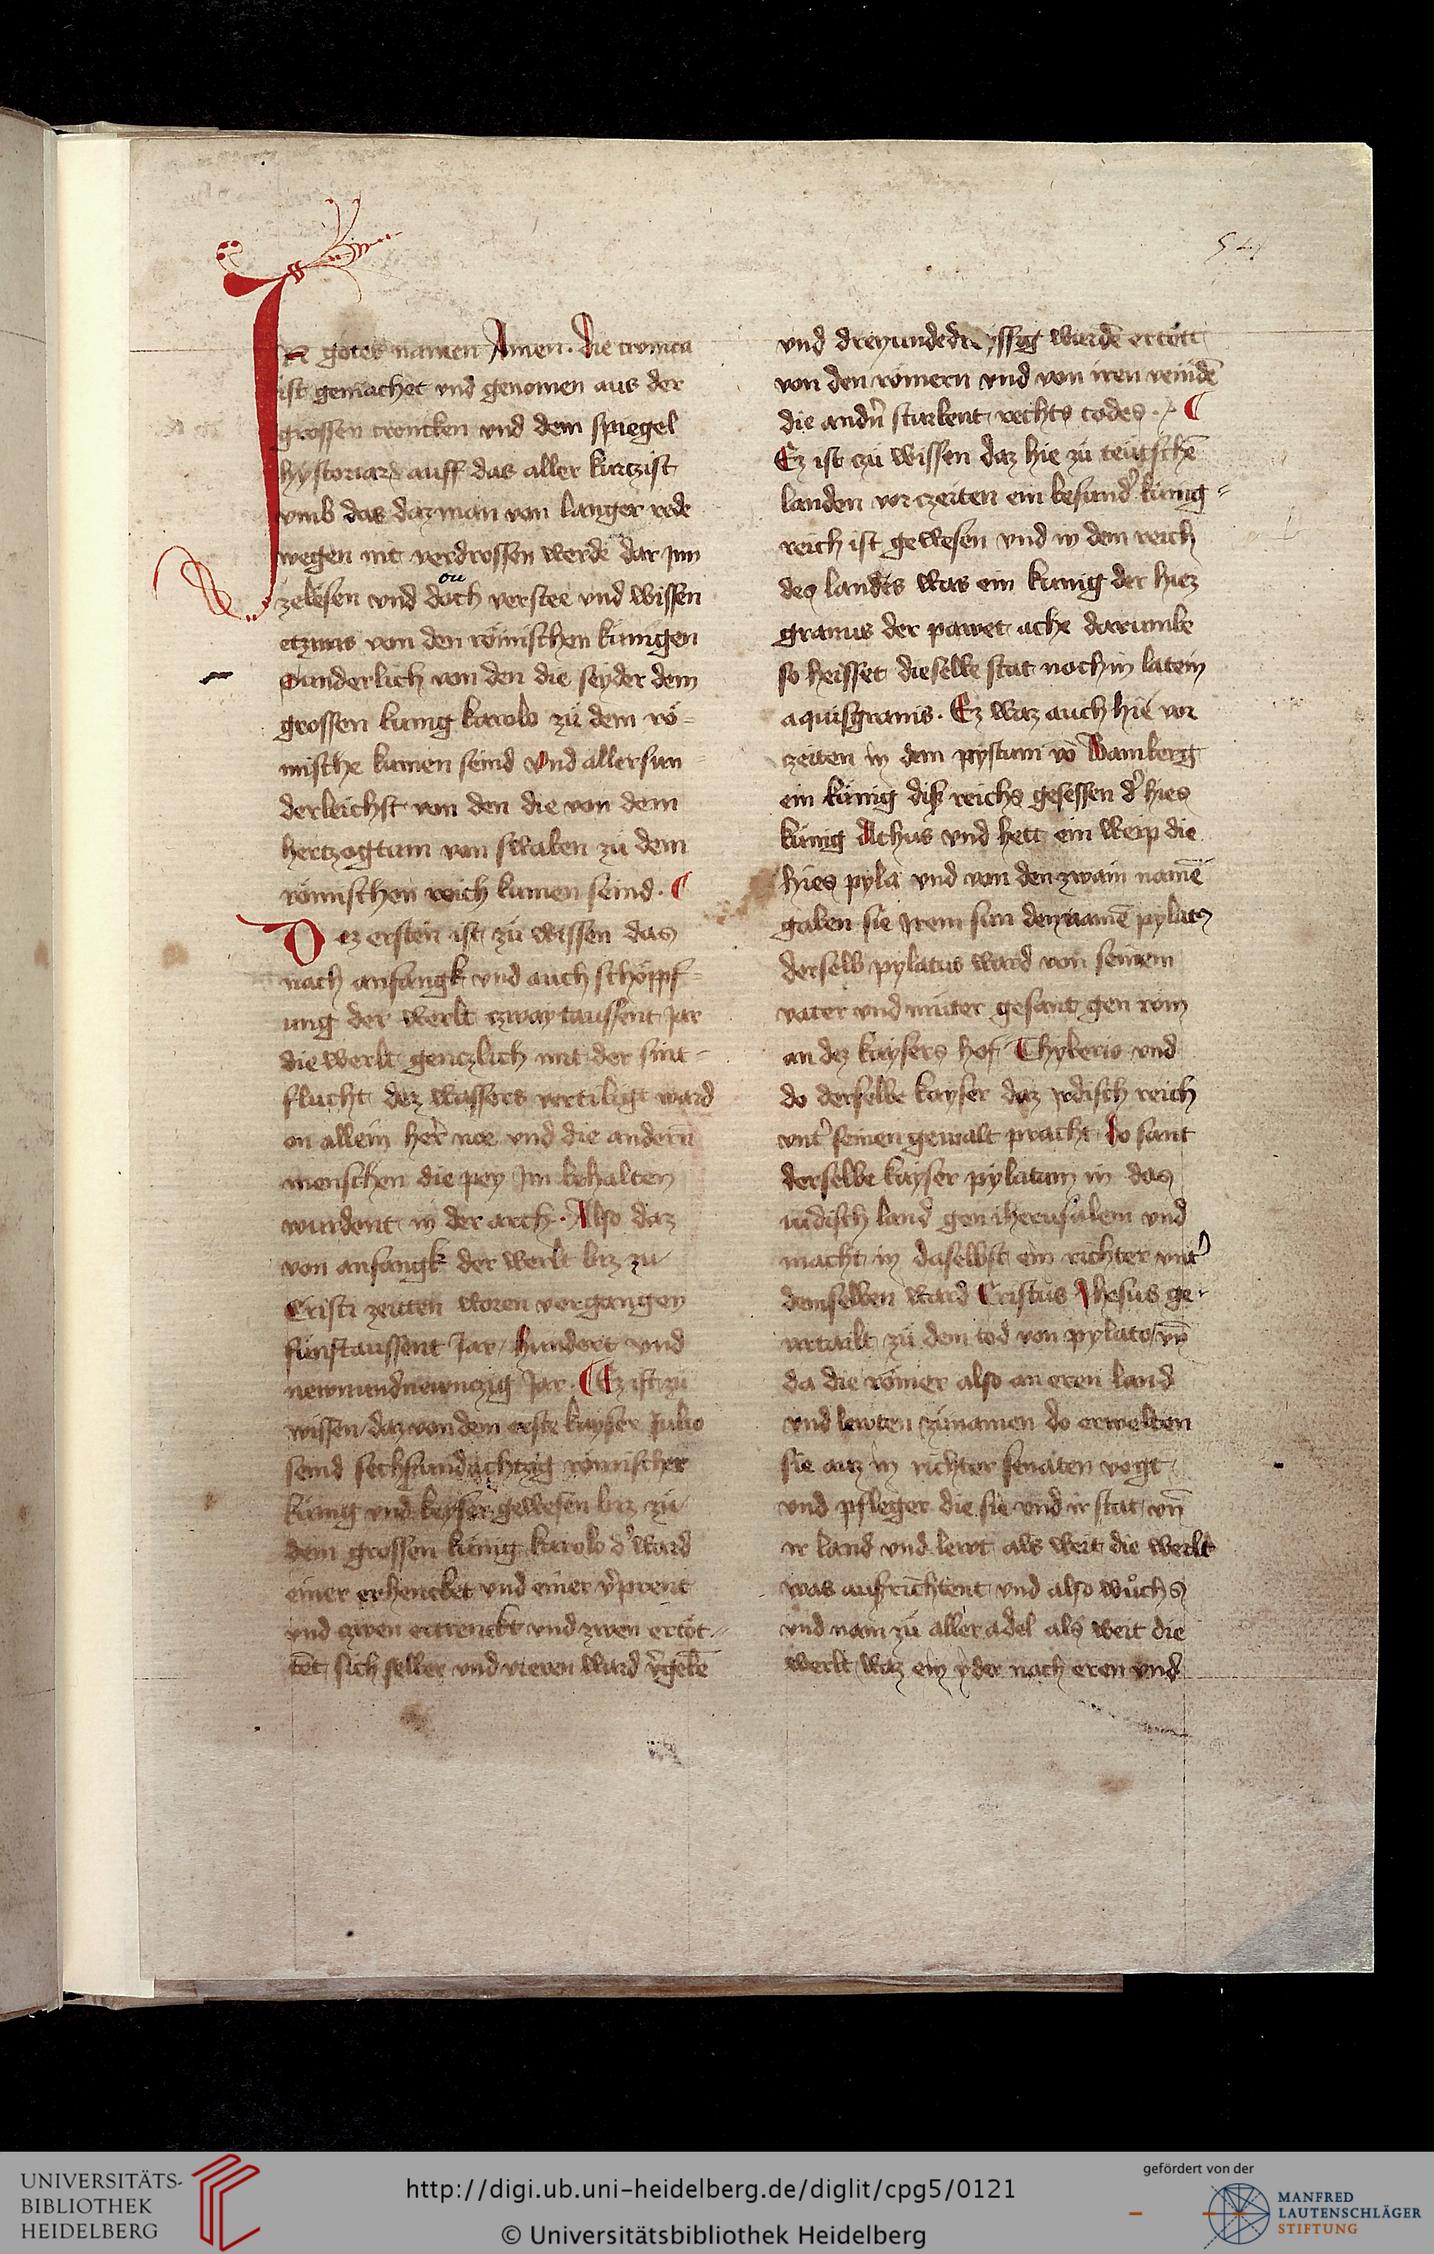 54
In gotes namen Amen. Die cronica
ist gemachet vnd genomen aus der
grossen croncken vnd dem spiegel
hystoriarum auff das aller kurczist
vmb das daz man von langer rede
wegen nit verdrossen werde dar jnn
zelesen vnd doch verstee vnd wissen
ou
etzwas von den römischen künigen
Sunderlich von den die seyder dem
grossen künig karolo zü dem rö-
mische kumen seind Vnd allersun-
derleichst von den die von dem
hertzogtum von swaben zü dem
römischen reich kumen seind. ¶
Dez ersten ist zü wissen das
nach anfangk vnd auch schöpf-
ung der werlt czway taussent jar
die werlt genczlich mit der sint-
flucht dez wassers vertiligt ward
on allein her noe vnd die andern
menschen die pey jm behalten
wurdent in der arch. Also daz
von anfangk der werlt biz zu
Cristi zeiten woren vergangen
fünftaussent Jar hundert vnd
newnundnewnczig Jar. ¶ Ez ist zü
wissen daz von dem erste kayser Julio
seind sechsundachtzig römischer
künig vnd keyser gewesen biz zü
dem grossen künig karolo d' ward
einer erhencket vnd einer v'prent
vnd zwen ertrenckt vnd zwen ertöt-
tēt sich selber vnd vieren ward v'gebē
vnd dreyundedreyssig wurdē ertött
von den römern vnd von iren veindē
die andn̄ sturbent rechts todes. ¶
Ez ist czü wissen daz hie zü teütschē
landen vor czeiten ein besund' künig-
reich ist gewesen vnd in dem reich
des landes was ein künig der hiez
granus der pawet ache darumbe
so heisset dieselbe stat noch in latein
aquisgranis. Ez waz auch hie vor
czeiten in dem pystum vō Bamberg
ein künig diß reichs gesessen d' hies
künig Athus vnd hett ein weip die
hies pyla vnd von den zwain namē
gaben sie jrem sun den namē pylatus
derselb pylatus ward von seinem
vater vnd müter gesant gen rom
an dez kaysers hof Thyberio vnd
do derselbe kayser daz jrdisch reich
vnt' seinen gewalt pracht do sant
derselbe kayser pylatum in das
iüdisch land gen iherusalem vnd
macht in daselbst ein richter vnt'
demselben ward Cristus Jhesus ge-
vrtailt zü dem tod von pylato vn̄
da die römer also an eren land
vnd lewten zünamen do erwelten
sie auz in richter senaten vogt
vnd pfleger die sie vnd ir stat vn̄
ir land vnd lewt als weit die werlt
was aufrichtent vnd also wůchs
vnd nam zü aller adel als weit die
werlt waz ein yder nach eren vnd
UNIVERSITÄTS-
BIBLIOTHEK
HEIDELBERG
http://digi.ub.uni-heidelberg.de/diglit/cpg5/0121
© Universitätsbibliothek Heidelberg
gefördert von der
MANFRED
LAUTENSCHLÄGER
STIFTUNG